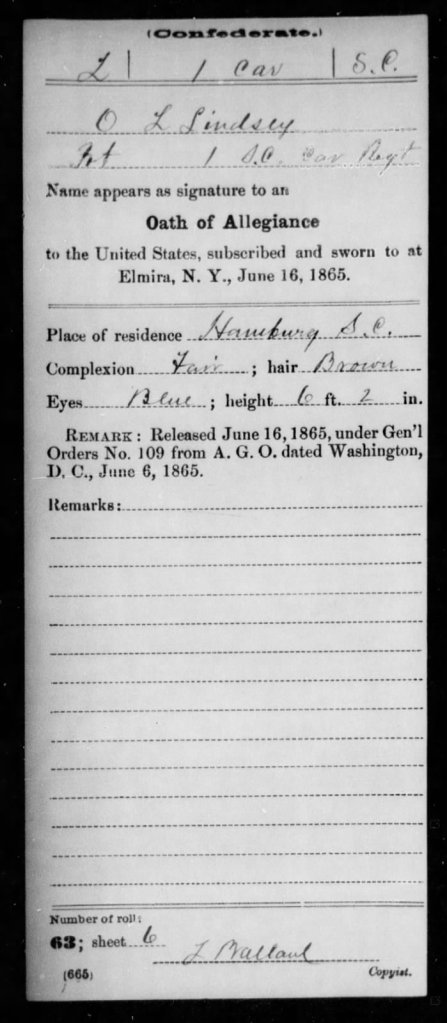 (Confederate.)
L | 1 Cav | S.C.
O L Lindsey
Pvt 1 S.C. Cav Reg't
Name appears as signature to an
Oath of Allegiance
to the United States, subscribed and sworn to at
Elmira, N. Y., June 16, 1865.
Place of residence Hamburg S.C.
Complexion Fair ; hair Brown
Eyes Blue ; height 6 ft. 2 in.
REMARK: Released June 16, 1865, under Gen'l
Orders No. 109 from A. G. O. dated Washington,
D. C., June 6, 1865.
Remarks:
Number of roll:
63; sheet 6
(665) Copyist.